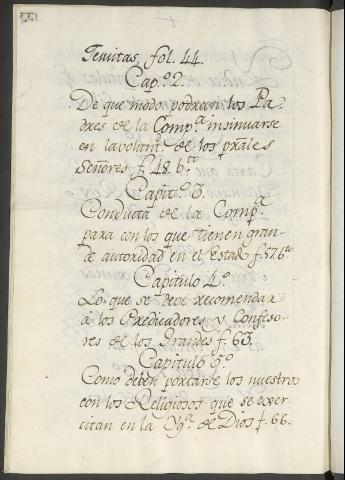 Jesuitas, fol. 44.
Cap.º 2.
De que modo podran los Pa-
dres de la Comp.ª insinuarse
en la volunt.ᵈ de los prãles
Señores f. 48. b.ᵗᵒ
Capit.º 3.
Conducta de la Comp.ª
para con los que tienen gran-
de autoridad en el Estad.º f. 57. b.ᵗᵒ
Capitulo 4.º
Lo que se debe recomendar
à los Predicadores y Confeso-
res de los Grandes f. 63.
Capitulo 5.º
Como deben portarse los nuestros
con los Religiosos que se exer-
citan en la Yg.ª de Dios f. 66.